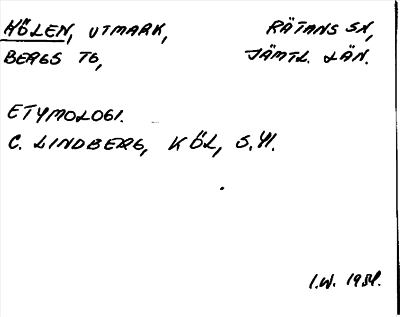 KÖLEN, UTMARK, RÄTANS SN,
BERGS TG, JÄMTL. LÄN.
ETYMOLOGI.
C. LINDBERG, KÖL, S. 41.
I.W. 1981.